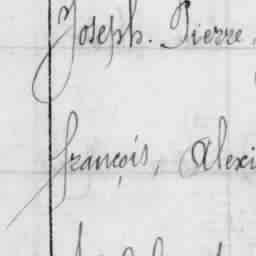 Joseph. Pierre
François, Alexi